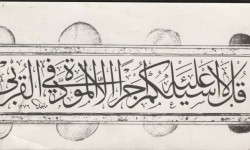 قل لا أسئلكم عليه أجرا إلا المودة في القربى